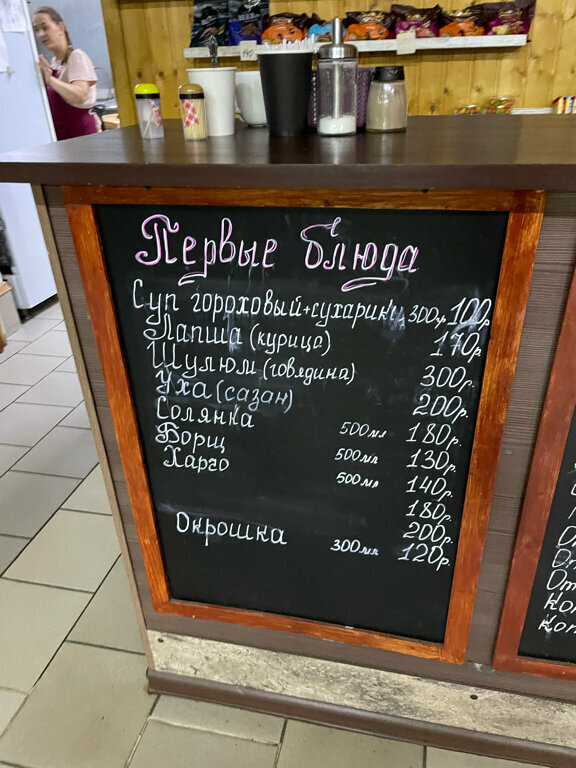 Первые блюда
Суп гороховый+сухарики 300гр 100р.
Лапша (курица) 170р.
Шулюм (говядина) 300р.
Уха (сазан) 200р.
Солянка 500мл 180р.
Борщ 500мл 130р.
Харчо 500мл 140р.
180р.
200р.
Окрошка 300мл 120р.